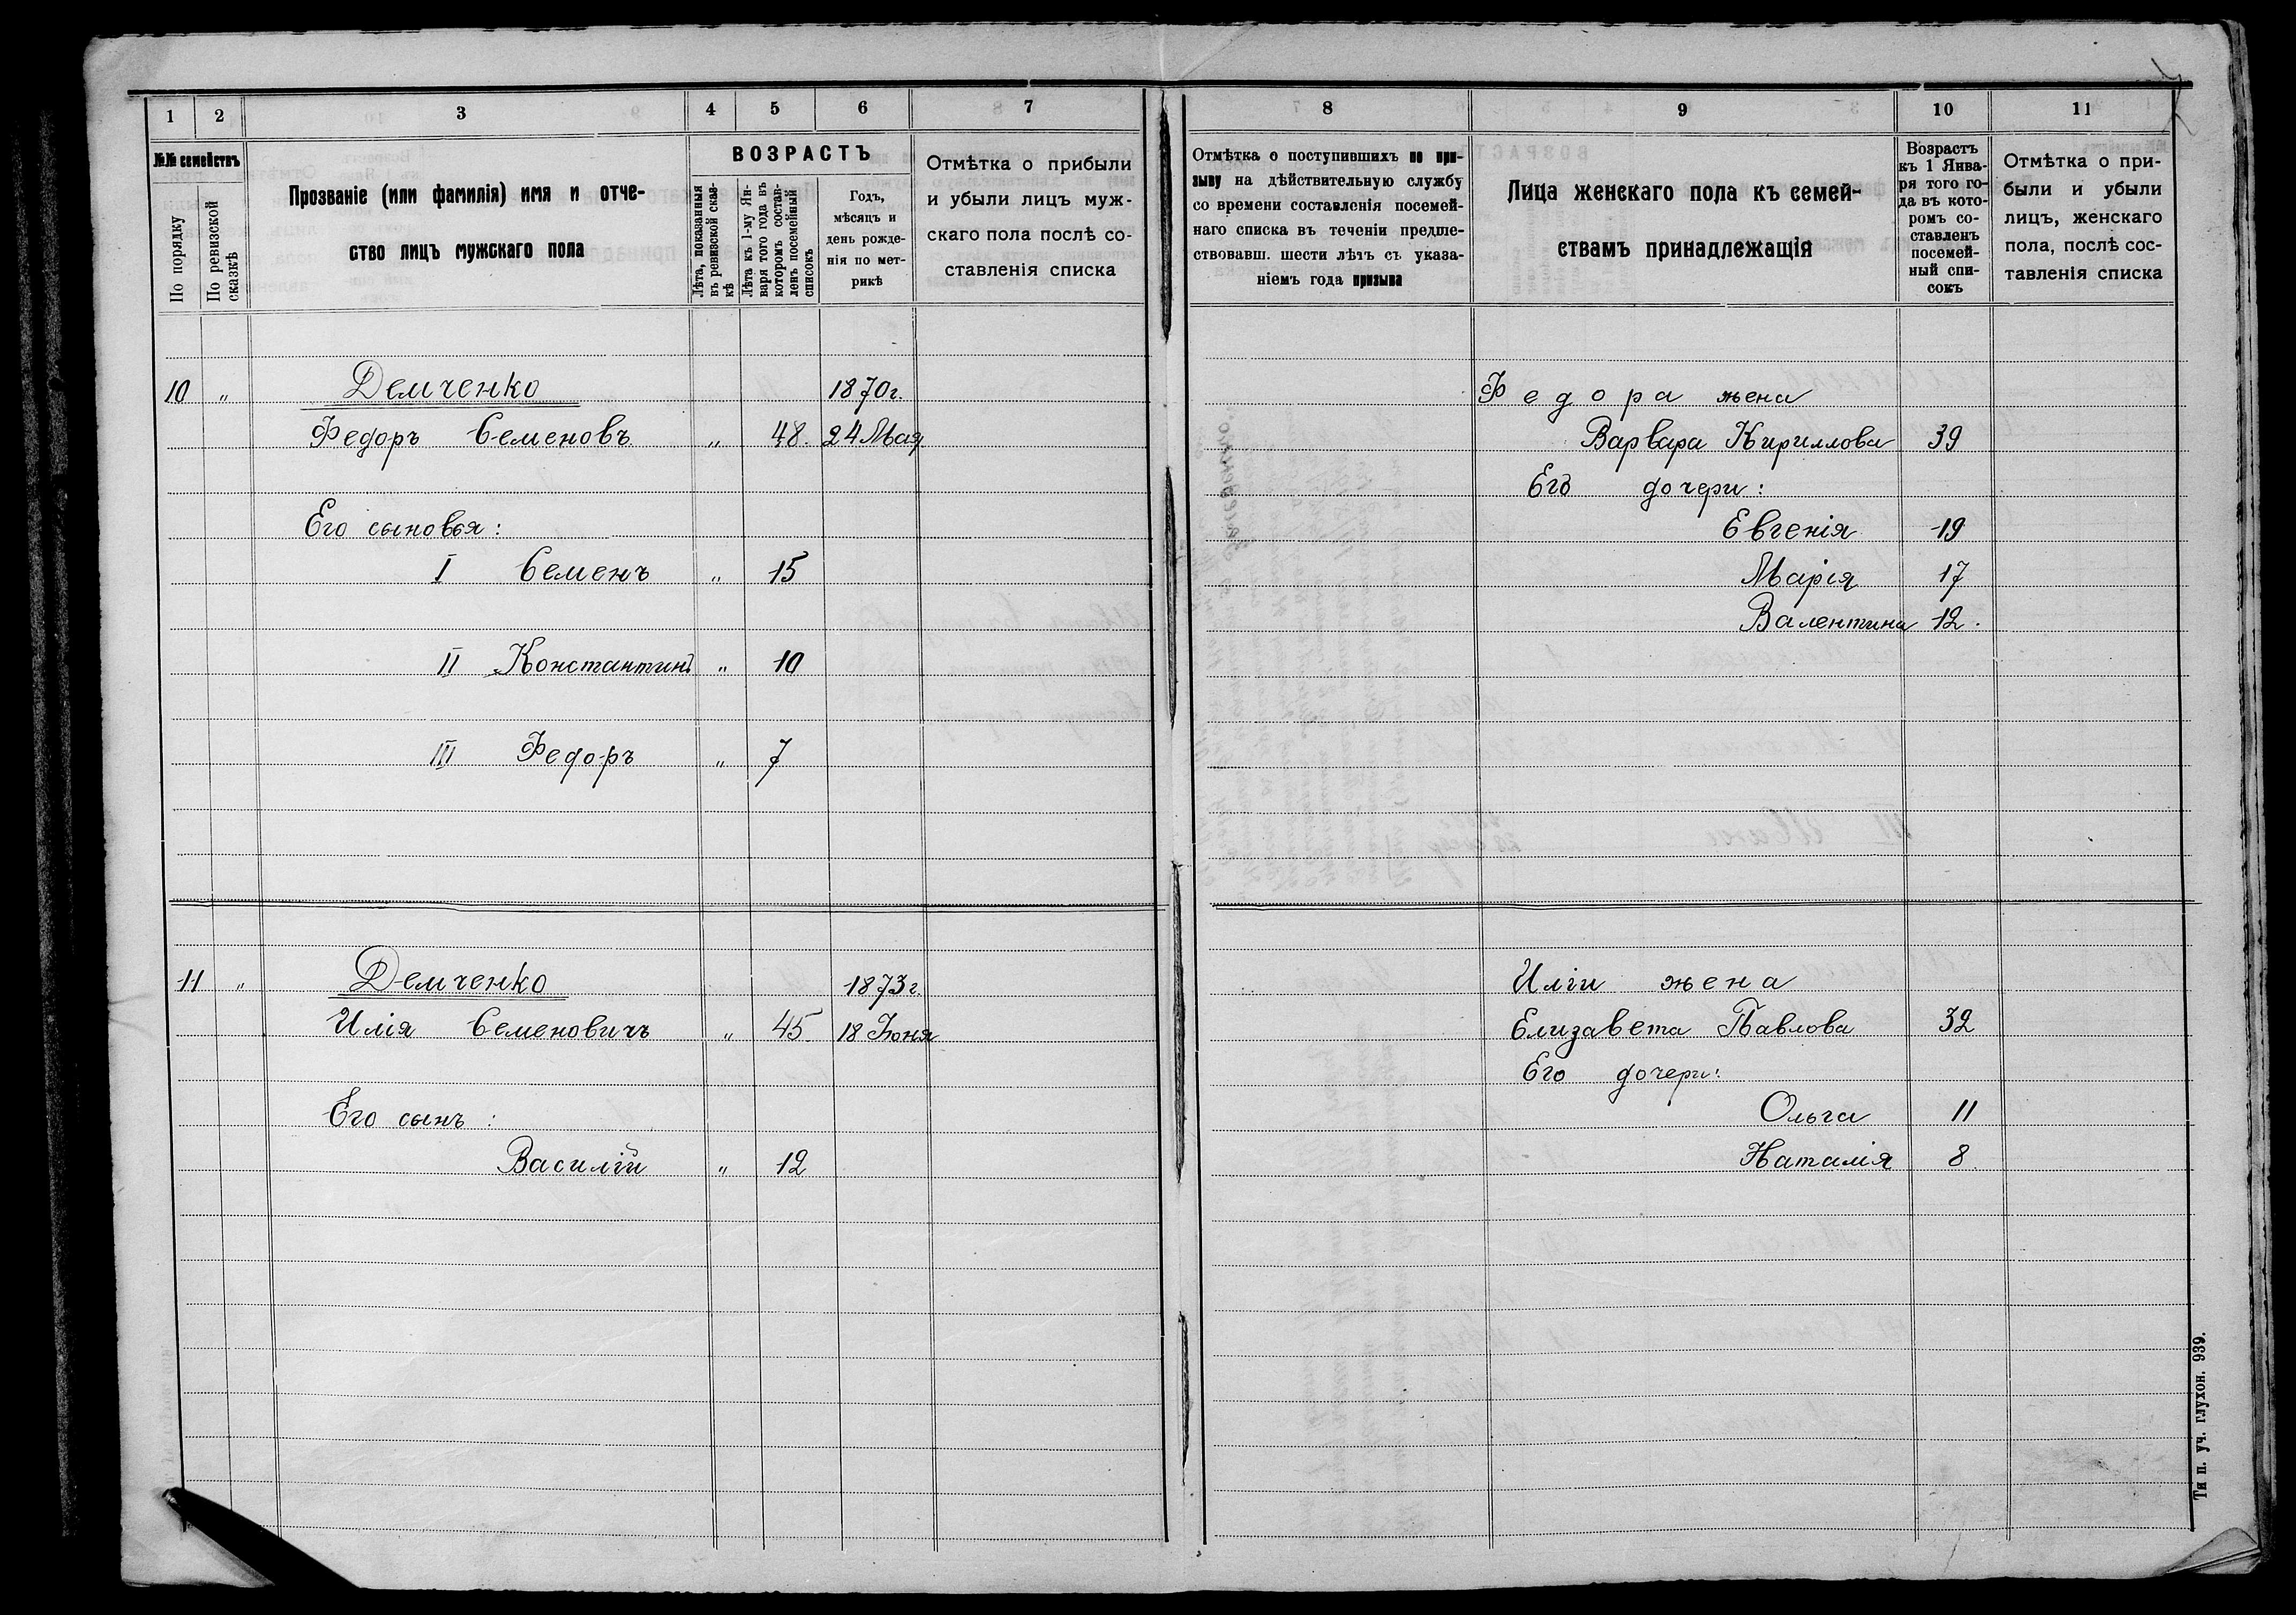 1 2 3 4 5 6 7
№№ семействъ
По порядку
По ревизской сказкѣ
Прозваніе (или фамилія) имя и отче-
ство лицъ мужскаго пола
ВОЗРАСТЪ
Лѣта, показанныя
въ ревизской сказ-
кѣ
Лѣта къ 1-му Ян-
варя того года въ
которомъ состав-
ленъ посемейный
списокъ
Годъ,
мѣсяцъ и
день рожде-
нія по мет-
рикѣ
Отмѣтка о прибыли
и убыли лицъ муж-
скаго пола послѣ со-
ставленія списка
10 „ Демченко 1870г.
Федоръ Семеновъ „ 48. 24 Мая
Его сыновья:
I Семенъ „ 15
II Константинъ „ 10
III Федоръ „ 7
11 „ Демченко 1873г.
Илія Семеновичъ „ 45. 18 Іюня
Его сынъ:
Василій „ 12
8 9 10 11
Отмѣтка о поступившихъ по при-
зыву на дѣйствительную службу
со времени составленія посемей-
наго списка въ теченіи предше-
ствовавш. шести лѣтъ съ указа-
ніемъ года призыва
Лица женскаго пола къ семей-
ствамъ принадлежащія
Возрастъ
къ 1 Янва-
ря того го-
да въ кото-
ромъ со-
ставленъ
посемей-
ный спи-
сокъ
Отмѣтка о при-
были и убыли
лицъ, женскаго
пола, послѣ сос-
тавленія списка
Федора жена
Варвара Кириллова 39
Его дочери:
Евгенія 19
Марія 17
Валентина 12.
Иліи жена
Елизавета Павлова 32
Его дочери:
Ольга 11
Наталія 8.
Тип. уч. глухон. 939.